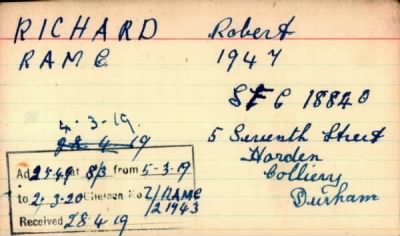 RICHARD Robert
RAMC 1947
SFC 18840
4-3-19.
28.4.19
5 Seventh Street
Horden
Colliery
Durham
Ad 2549 at 8/3 from 5-3-19
to 2/3-20 Chelsea No 2/RAMC
/21943
Received 28.4.19